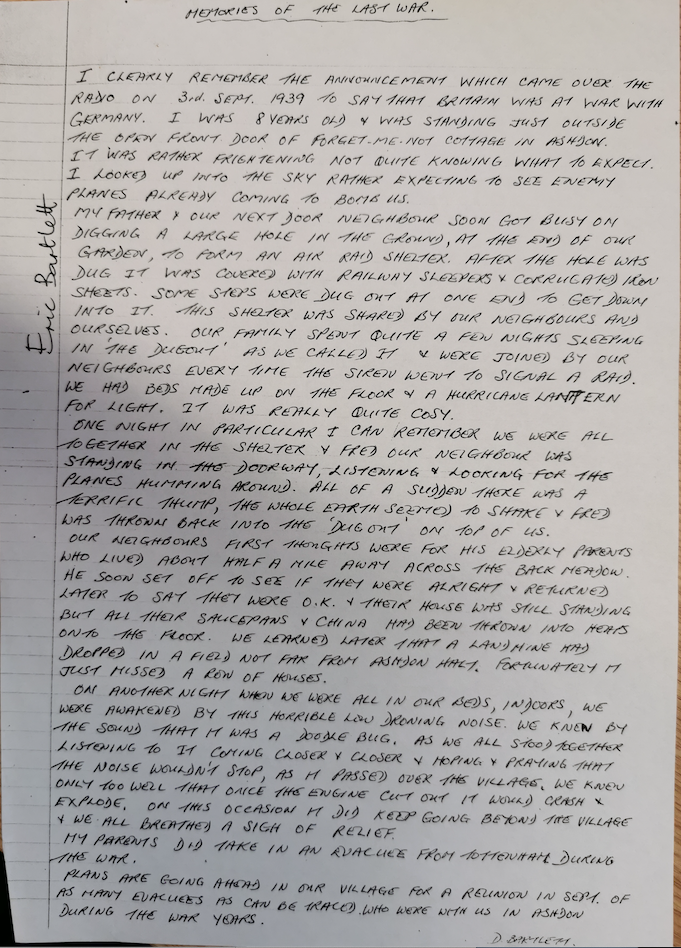 MEMORIES OF THE LAST WAR.
I CLEARLY REMEMBER THE ANNOUNCEMENT WHICH CAME OVER THE
RADIO ON 3rd. SEPT. 1939 TO SAY THAT BRITAIN WAS AT WAR WITH
GERMANY. I WAS 8 YEARS OLD & WAS STANDING JUST OUTSIDE
THE OPEN FRONT DOOR OF FORGET-ME-NOT COTTAGE IN ASHDON.
IT WAS RATHER FRIGHTENING NOT QUITE KNOWING WHAT TO EXPECT.
I LOOKED UP INTO THE SKY RATHER EXPECTING TO SEE ENEMY
PLANES ALREADY COMING TO BOMB US.
MY FATHER & OUR NEXT DOOR NEIGHBOUR SOON GOT BUSY ON
DIGGING A LARGE HOLE IN THE GROUND, AT THE END OF OUR
GARDEN, TO FORM AN AIR RAID SHELTER. AFTER THE HOLE WAS
DUG IT WAS COVERED WITH RAILWAY SLEEPERS & CORRUGATED IRON
SHEETS. SOME STEPS WERE DUG OUT AT ONE END TO GET DOWN
INTO IT. THIS SHELTER WAS SHARED BY OUR NEIGHBOURS AND
OURSELVES. OUR FAMILY SPENT QUITE A FEW NIGHTS SLEEPING
IN 'THE DUGOUT' AS WE CALLED IT & WERE JOINED BY OUR
NEIGHBOURS EVERY TIME THE SIREN WENT TO SIGNAL A RAID.
WE HAD BEDS MADE UP ON THE FLOOR & A HURRICANE LANTERN
FOR LIGHT. IT WAS REALLY QUITE COSY.
ONE NIGHT IN PARTICULAR I CAN REMEMBER WE WERE ALL
TOGETHER IN THE SHELTER & FRED OUR NEIGHBOUR WAS
STANDING IN THE DOORWAY, LISTENING & LOOKING FOR THE
PLANES HUMMING AROUND. ALL OF A SUDDEN THERE WAS A
TERRIFIC THUMP, THE WHOLE EARTH SEEMED TO SHAKE & FRED
WAS THROWN BACK INTO THE 'DUG OUT' ON TOP OF US.
OUR NEIGHBOURS FIRST THOUGHTS WERE FOR HIS ELDERLY PARENTS
WHO LIVED ABOUT HALF A MILE AWAY ACROSS THE BACK MEADOW.
HE SOON SET OFF TO SEE IF THEY WERE ALRIGHT & RETURNED
LATER TO SAY THEY WERE O.K. & THEIR HOUSE WAS STILL STANDING
BUT ALL THEIR SAUCEPANS & CHINA HAD BEEN THROWN INTO HEAPS
ONTO THE FLOOR. WE LEARNED LATER THAT A LANDMINE HAD
DROPPED IN A FIELD NOT FAR FROM ASHDON HALT. FORTUNATELY IT
JUST MISSED A ROW OF HOUSES.
ON ANOTHER NIGHT WHEN WE WERE ALL IN OUR BEDS, INDOORS, WE
WERE AWAKENED BY THIS HORRIBLE LOW DRONING NOISE. WE KNEW BY
THE SOUND THAT IT WAS A DOODLE BUG. AS WE ALL STOOD TOGETHER
LISTENING TO IT COMING CLOSER & CLOSER & HOPING & PRAYING THAT
THE NOISE WOULDN'T STOP, AS IT PASSED OVER THE VILLAGE. WE KNEW
ONLY TOO WELL THAT ONCE THE ENGINE CUT OUT IT WOULD CRASH &
EXPLODE. ON THIS OCCASION IT DID KEEP GOING BEYOND THE VILLAGE
& WE ALL BREATHED A SIGH OF RELIEF.
MY PARENTS DID TAKE IN AN EVACUEE FROM TOTTENHAM DURING
THE WAR.
PLANS ARE GOING AHEAD IN OUR VILLAGE FOR A REUNION IN SEPT. OF
AS MANY EVACUEES AS CAN BE TRACED. WHO WERE WITH US IN ASHDON
DURING THE WAR YEARS.
D BARTLETT.
Eric Bartlett